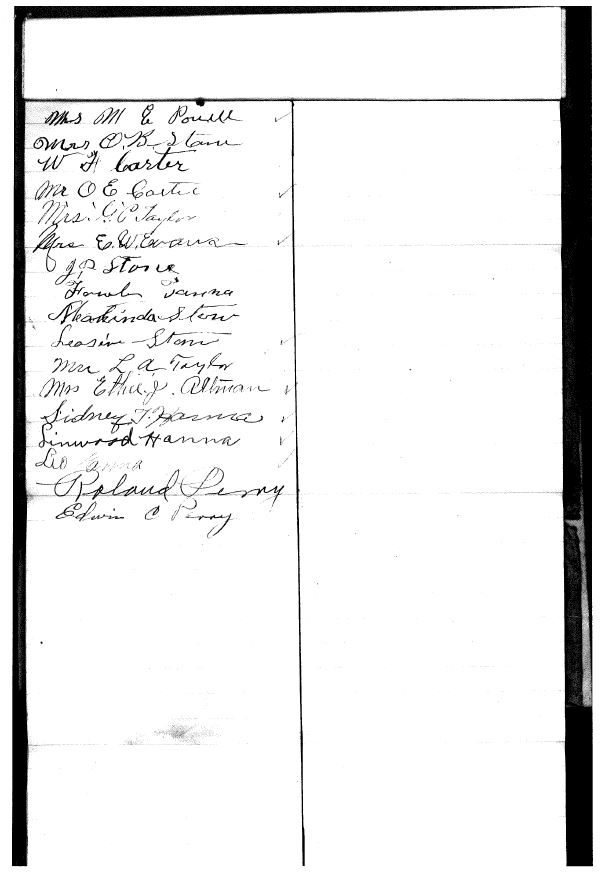 Mrs M E Powell
Mrs O. B. Stone
W F Carter
Mr O E Carter
Mrs. G. C. Taylor
Mrs E. W. Evans
J. P. Stone
Hanna
Stone
Stone
L A Taylor
Mrs Ethie J. Altman
Sidney T. Hanna
Linwood Hanna
Leo Hanna
Roland Perry
Edwin C Perry